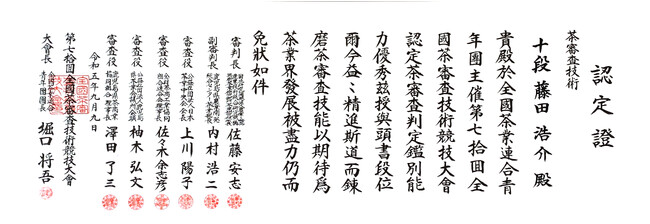 認定證
茶審査技術
十段 藤田 浩介 殿
貴殿於全國茶業連合青
年團主催第七拾回全
國茶審査技術競技大會
認定茶審査判定鑑別能
力優秀茲授與頭書段位
爾今益〻精進斯道而錬
磨茶審査技能以期待為
茶業界發展被盡力仍而
免狀如件
審判長 佐藤 安志
副審判長 内村 浩二
審査役 上川 陽子
審査役 佐々木 余志彦
審査役 柚木 弘文
審査役 澤田 了三
令和五年九月九日
第七拾回全國茶審査技術競技大會
大會長 堀口 将吾